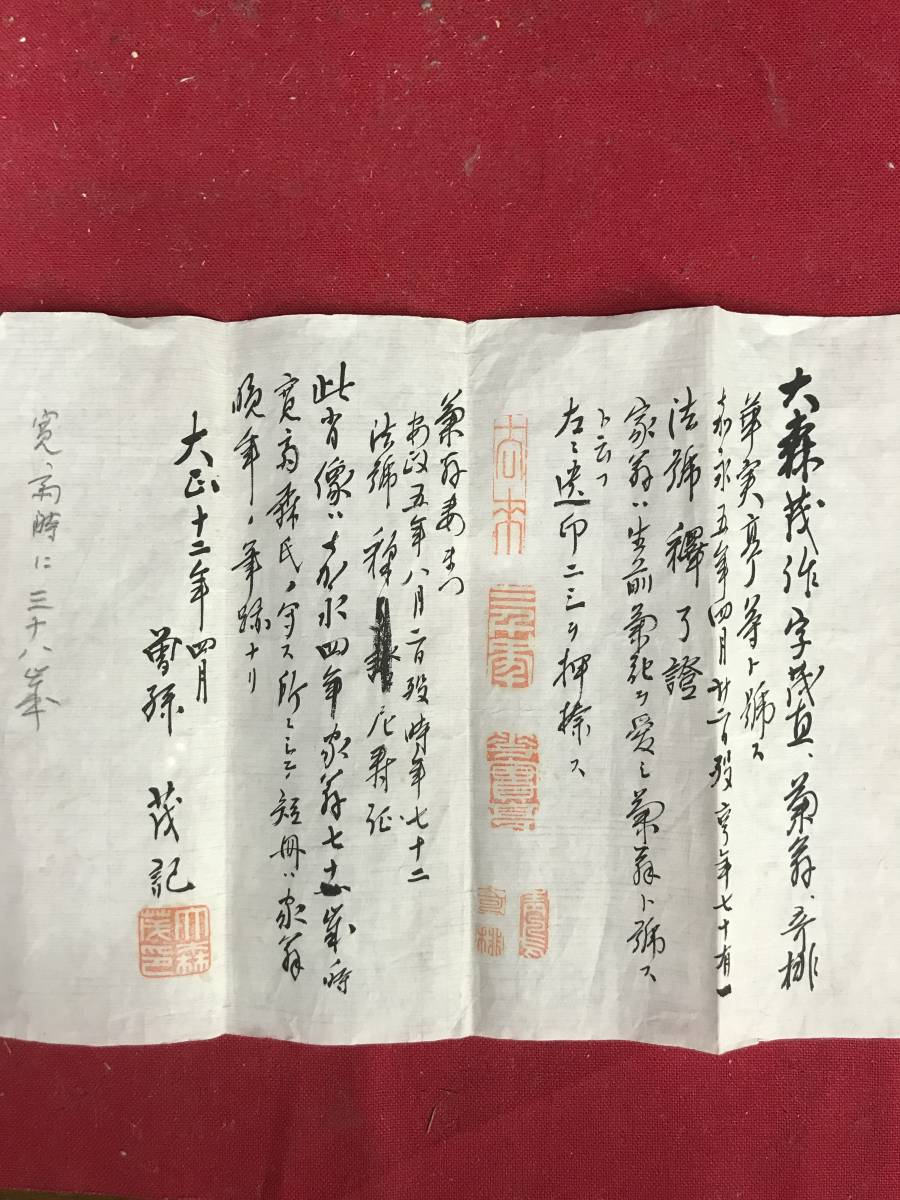 大森茂作字茂直、菊翁、
華実亭等ト號ス
嘉永五年四月廿二日歿享年七十有一
法號 釋了證
家翁ハ生前菊花ヲ愛シ菊翁ト號ス
ト云フ
左ニ遺印二三ヲ押捺ス
菊翁妻
安政五年八月二日歿時年七十二
法號 釋 尼壽征
此肖像ハ嘉永四年家翁七十歳時
寛斎森氏ノ写ス所ニシテ短冊ハ家翁
晩年ノ筆跡ナリ
大正十二年四月
曽孫 茂記
大森茂印
寛斎時に三十八歳